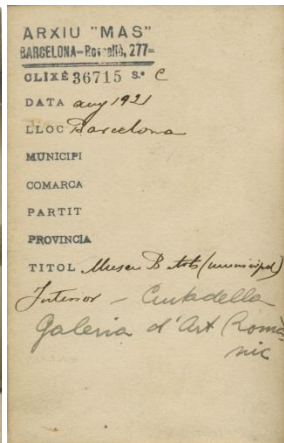 ARXIU "MAS"
BARCELONA-Rosselló, 277=
CLIXÉ 36715 S.e C
DATA any 1921
LLOC Barcelona
MUNICIPI
COMARCA
PARTIT
PROVINCIA
TITOL Museu B. Arts (municipal)
Interior - Ciutadella
Galeria d'Art Romà-
nic